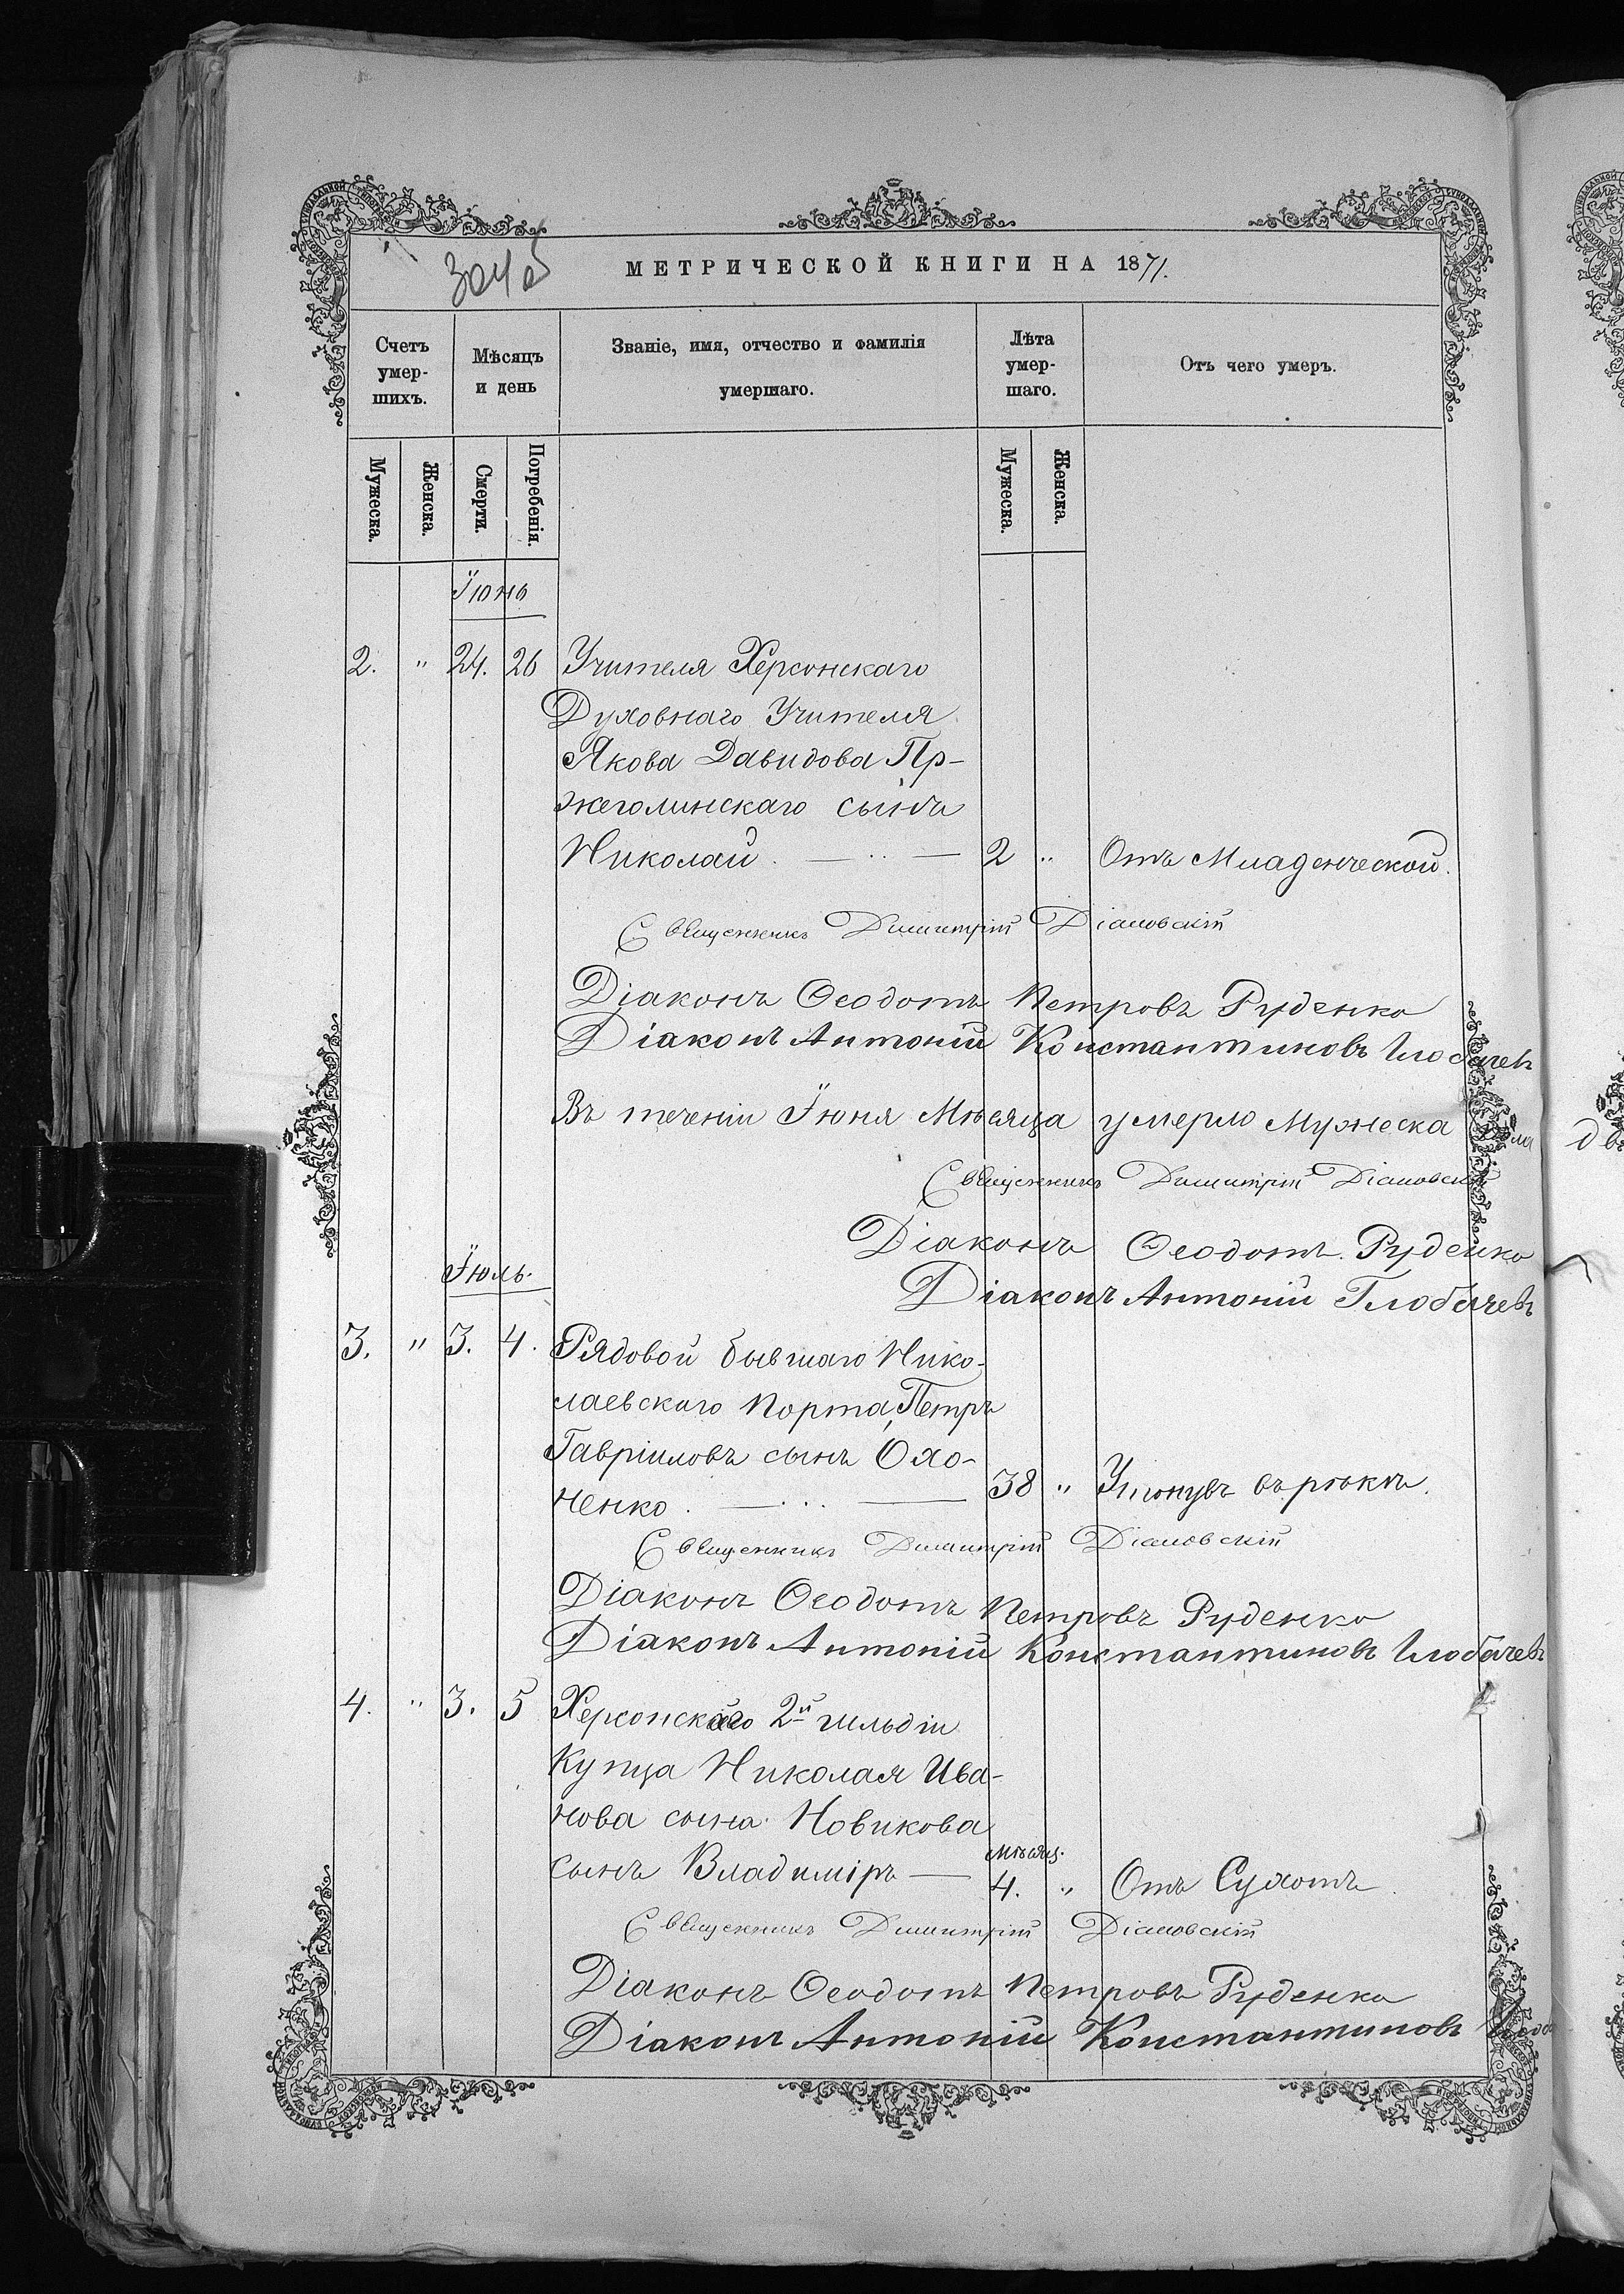 304 об
МЕТРИЧЕСКОЙ КНИГИ НА 1871.
Счетъ умер-шихъ.
Мѣсяцъ и день
Званіе, имя, отчество и фамилія умершаго.
Лѣта умер-шаго.
Отъ чего умеръ.
Мужеска.
Женска.
Смерти.
Погребенія.
Мужеска.
Женска.
Їюнь
2. " 24. 26 Учителя Херсонскаго
Духовнаго Учителя
Якова Давидова Пр-
жеголинскаго сынъ
Николай. 2 " Отъ Младенческой.
Священникъ Димитрій Діановскій
Діаконъ Ѳеодотъ Петровъ Руденко
Діаконъ Антоній Константиновъ Глобачевъ
Въ теченіи Їюня Мѣсяца умерло Мужеска пола
Священникъ Димитрій Діановскій
Діаконъ Ѳеодотъ Руденко
Діаконъ Антоній Глобачевъ
Їюль.
3. " 3. 4. Рядовой бывшаго Нико-
лаевскаго Порта, Петръ
Гавріиловъ сынъ Охо-
ненко. 38 " Утонувъ въ рѣкѣ.
Священникъ Димитрій Діановскій
Діаконъ Ѳеодотъ Петровъ Руденко
Діаконъ Антоній Константиновъ Глобачевъ
4. " 3. 5 Херсонскаго 2й гильдіи
Купца Николая Ива-
нова сына Новикова
мѣсяц.
сынъ Владиміръ 4. " Отъ Сухотъ
Священникъ Димитрій Діановскій
Діаконъ Ѳеодотъ Петровъ Руденко
Діаконъ Антоній Константиновъ